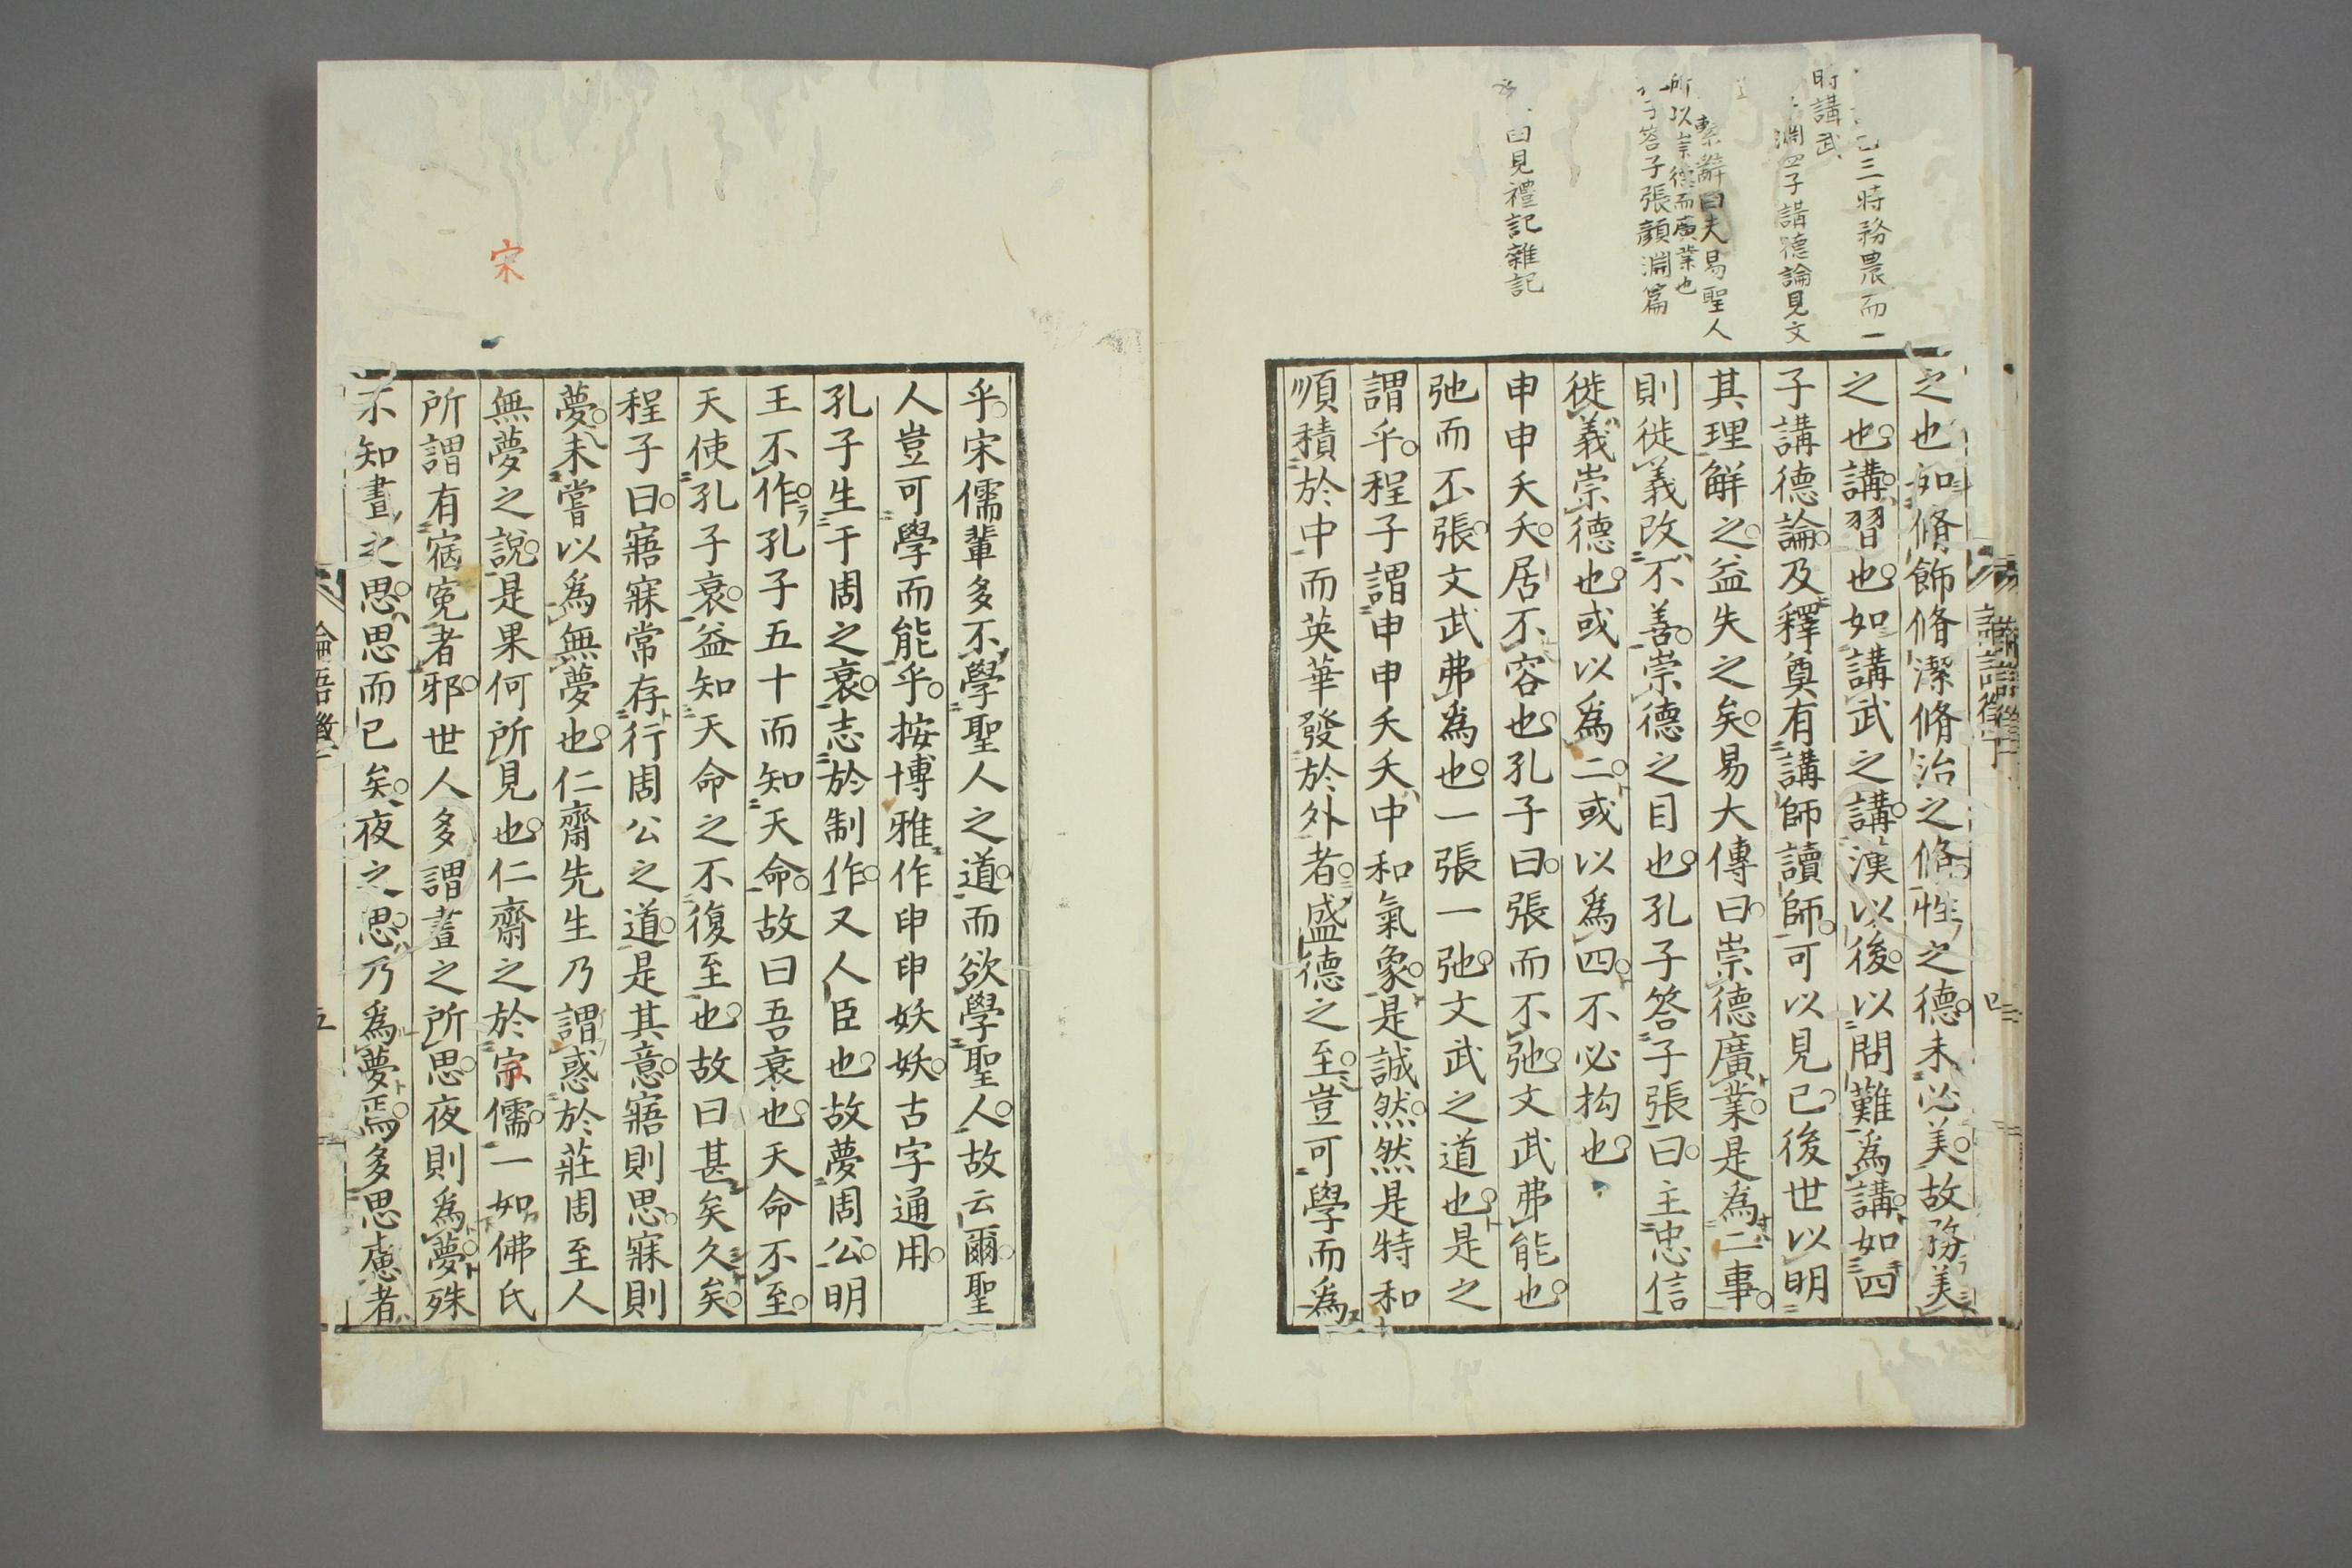 三時務農而一
時講武
淵四子講德論見文
繫辭曰夫易聖人
所以崇德而廣業也
子答子張顏淵篇
曰見禮記雜記
之也如脩飾脩潔脩治之脩性之德未必美故務美
之也講習也如講武之講漢以後以問難為講如四
子講德論及釋奠有講師讀師可以見已後世以明
其理解之益失之矣易大傳曰崇德廣業是為二事
則徙義改不善崇德之目也孔子答子張曰主忠信
徙義崇德也或以為二或以為四不必拘也
申申夭夭居不容也孔子曰張而不弛文武弗能也
弛而不張文武弗為也一張一弛文武之道也是之
謂乎程子謂申申夭夭中和氣象是誠然然是特和
順積於中而英華發於外者盛德之至豈可學而為
乎宋儒輩多不學聖人之道而欲學聖人故云爾聖
人豈可學而能乎按博雅作申申妖妖古字通用
孔子生于周之衰志於制作又人臣也故夢周公明
王不作孔子五十而知天命故曰吾衰也天命不至
天使孔子衰益知天命之不復至也故曰甚矣久矣
程子曰寤寐常存行周公之道是其意寤則思寐則
夢未嘗以為無夢也仁齋先生乃謂惑於莊周至人
無夢之說是果何所見也仁齋之於宗儒一如佛氏
宋
所謂有宿冤者邪世人多謂晝之所思夜則為夢殊
不知晝之思思而已矣夜之思乃為夢焉多思慮者
論語徵
五